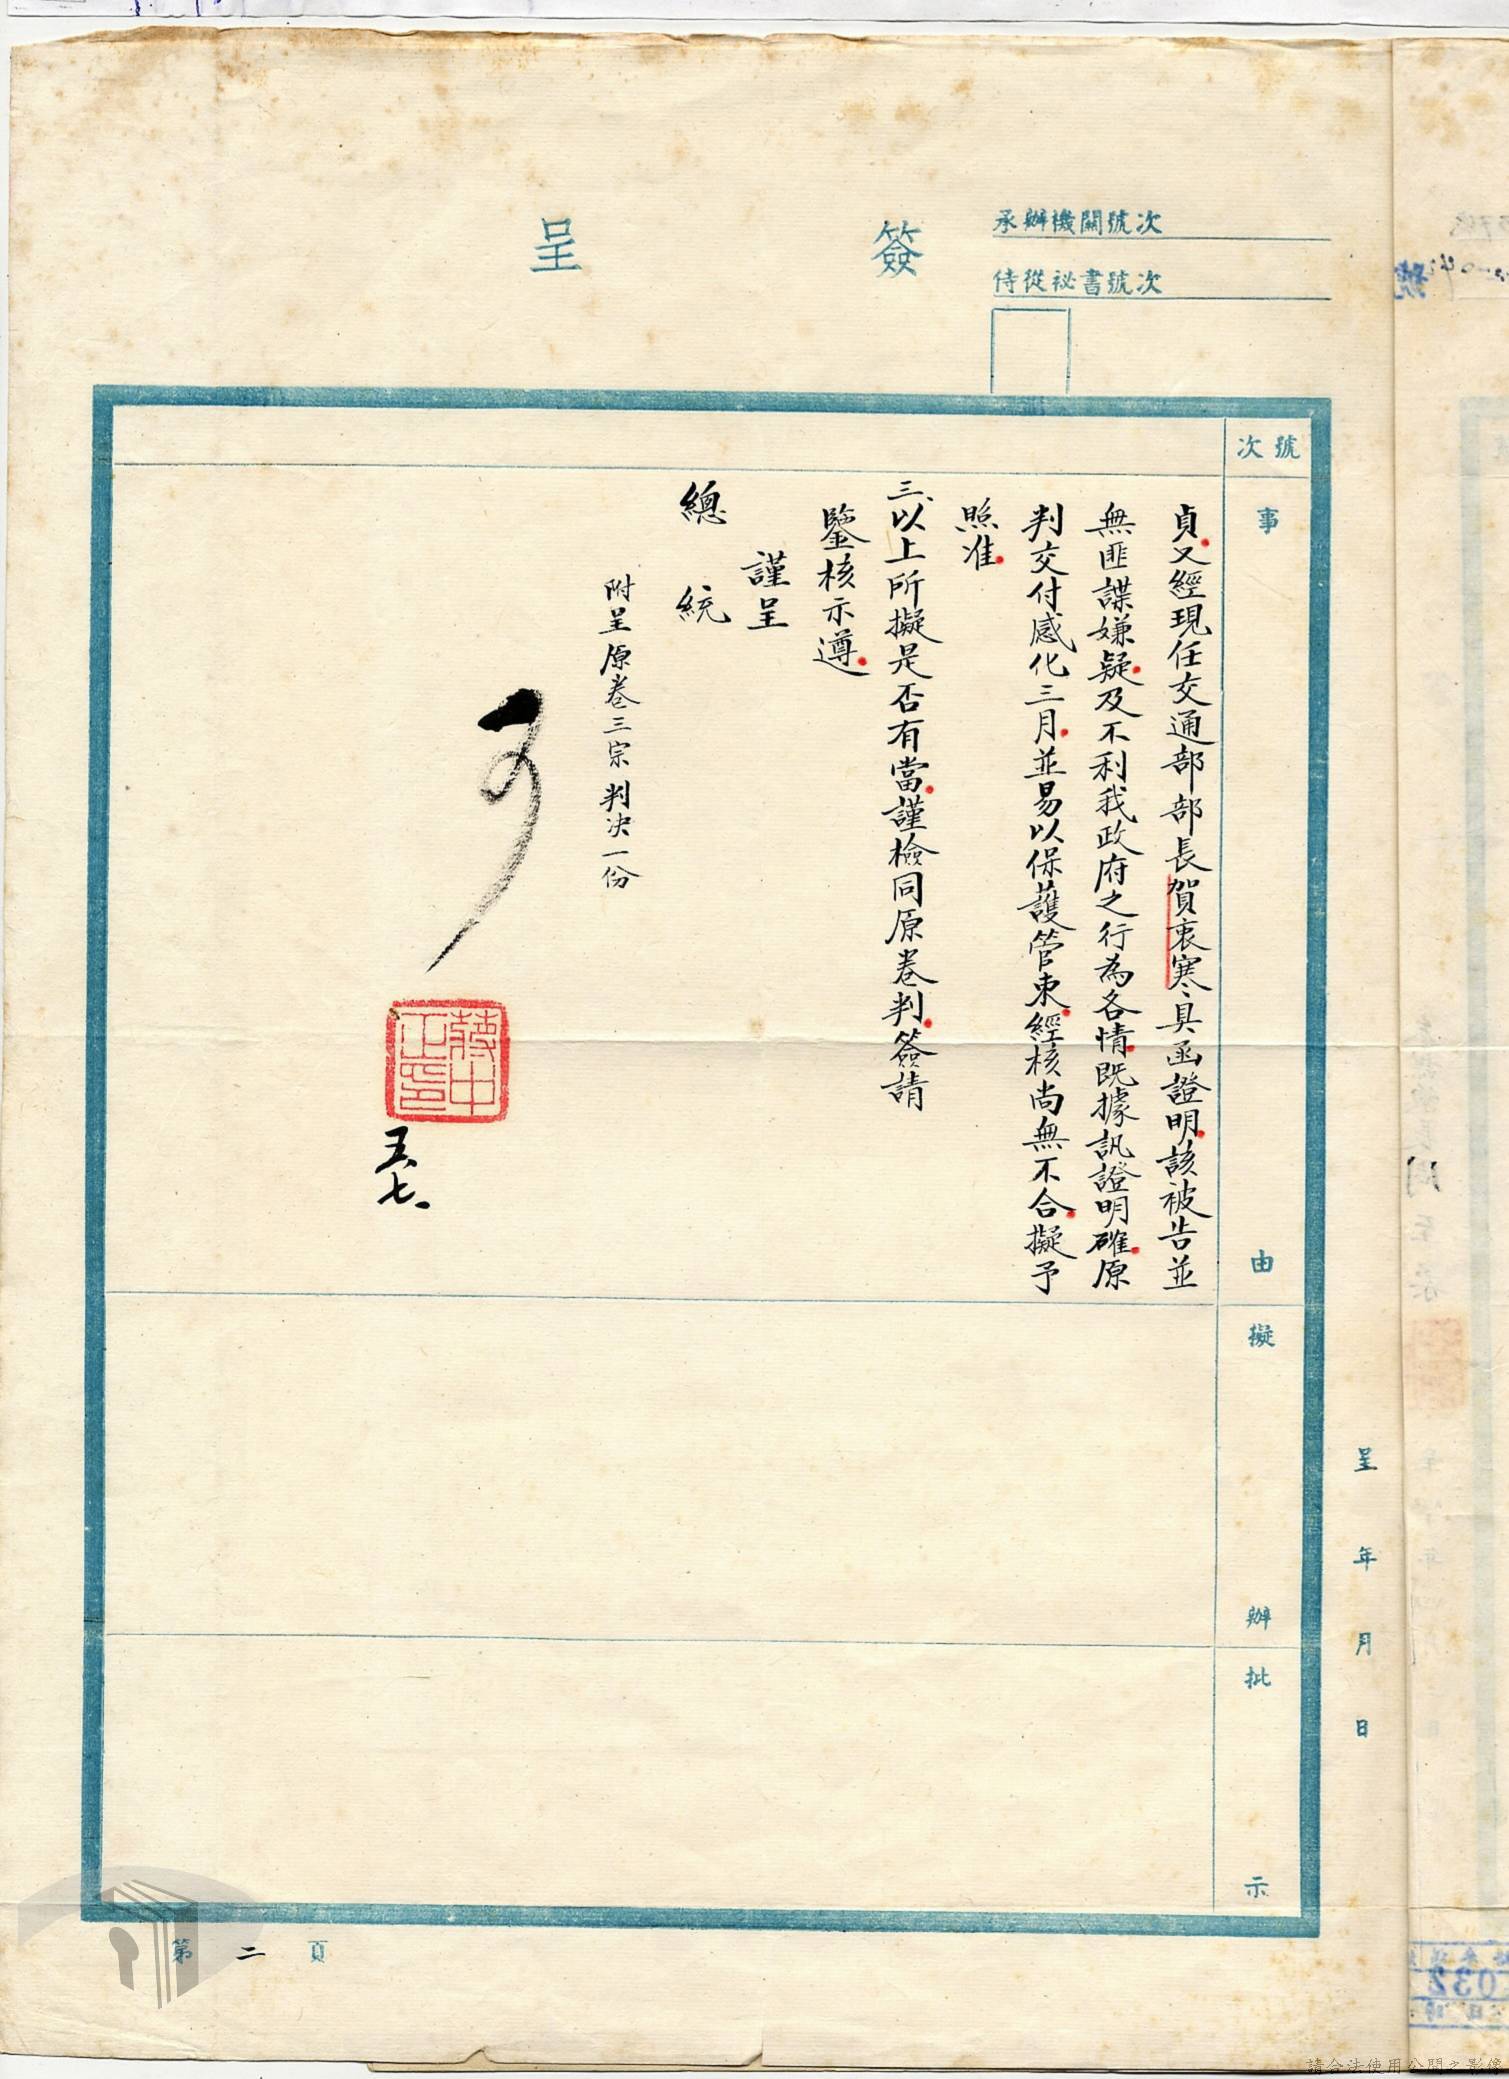 簽呈
承辦機關號次
侍從祕書號次
號次
事由
擬辦
批示
貞又經現任交通部部長賀衷寒具函證明該被告並
無匪諜嫌疑及不利我政府之行為各情既據訊證明確原
判交付感化三月並易以保護管束經核尚無不合擬予
照准
三、以上所擬是否有當謹檢同原卷判簽請
鑒核示遵
謹呈
總統
附呈原卷三宗判决一份
可
蔣中正印
五、七、
呈 年 月 日
第二頁
032
請合法使用公開之影像